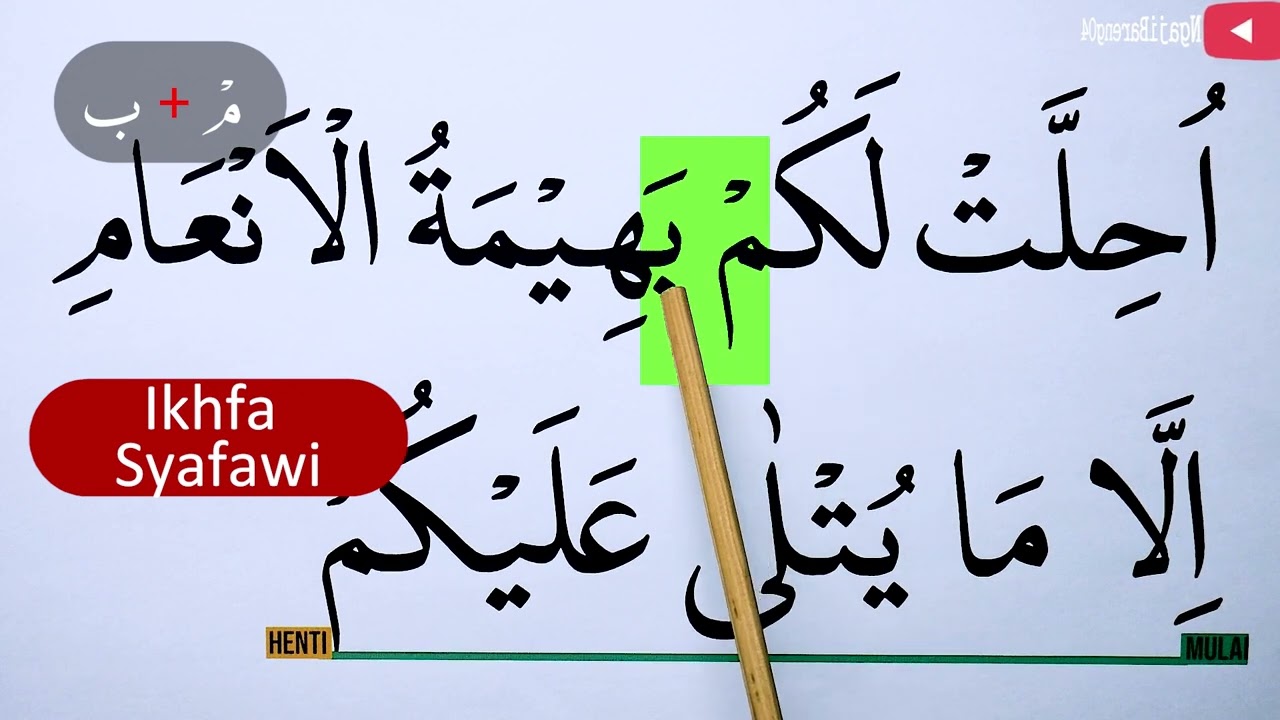 NgajiBareng04
مْ + ب
اُحِلَّتْ لَكُمْ بَهِيْمَةُ الْاَنْعَامِ
Ikhfa
Syafawi
اِلَّا مَا يُتْلٰى عَلَيْكُمْ
HENTI
MULAI